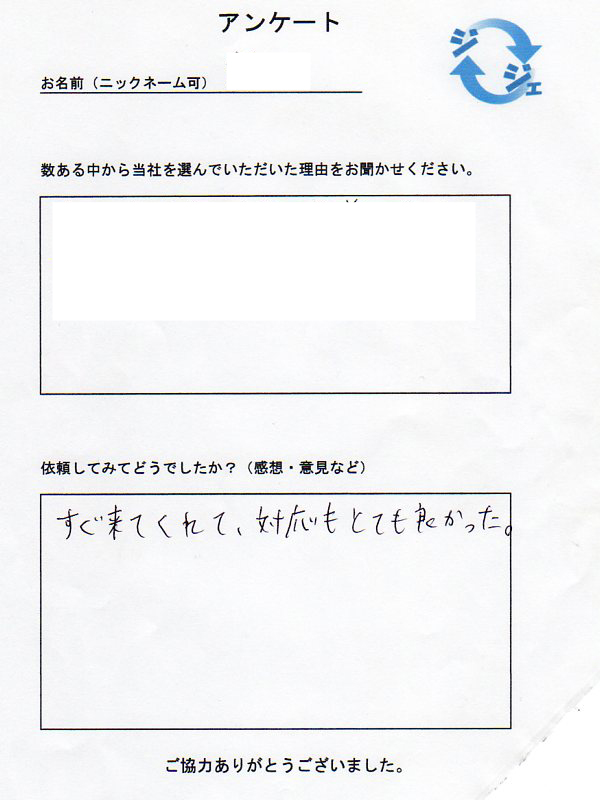 アンケート
ジジェ
お名前（ニックネーム可）
数ある中から当社を選んでいただいた理由をお聞かせください。
依頼してみてどうでしたか？（感想・意見など）
すぐ来てくれて、対応もとても良かった。
ご協力ありがとうございました。